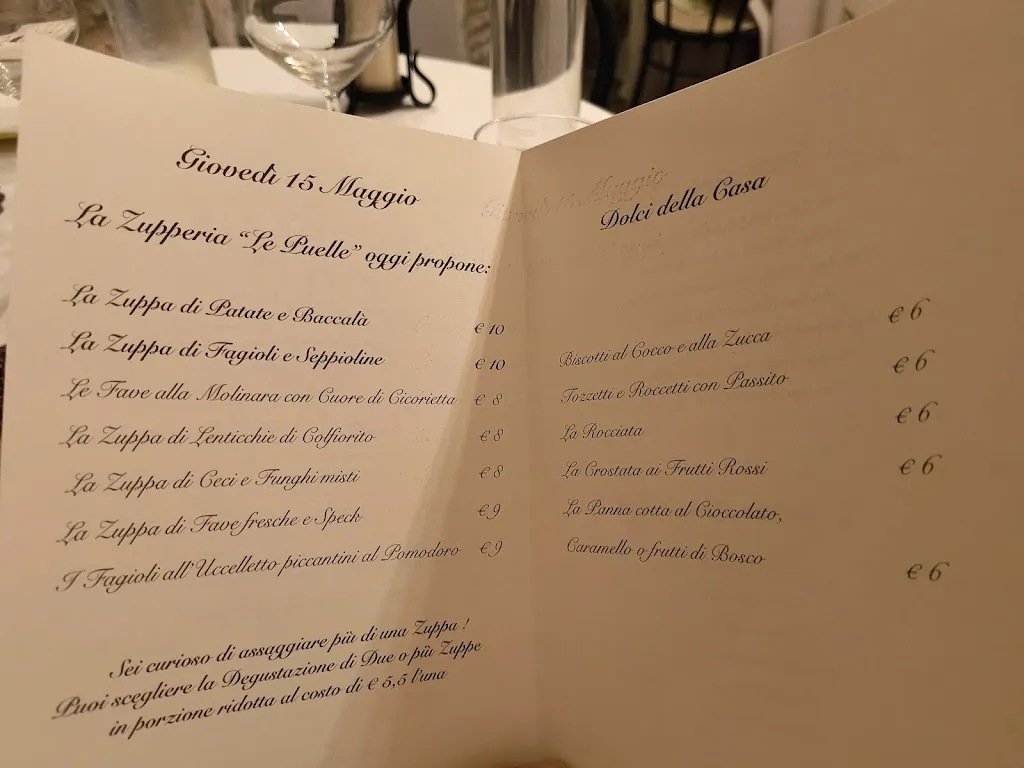 Giovedì 15 Maggio
La Zupperia "Le Puelle" oggi propone:
La Zuppa di Patate e Baccalà € 10
La Zuppa di Fagioli e Seppioline € 10
Le Fave alla Molinara con Cuore di Cicorietta € 8
La Zuppa di Lenticchie di Colfiorito € 8
La Zuppa di Ceci e Funghi misti € 8
La Zuppa di Fave fresche e Speck € 9
I Fagioli all'Uccelletto piccantini al Pomodoro € 9
Sei curioso di assaggiare più di una Zuppa !
Puoi scegliere la Degustazione di Due o più Zuppe
in porzione ridotta al costo di € 5,5 l'una
Dolci della Casa
Biscotti al Cocco e alla Zucca € 6
Tozzetti e Roccetti con Passito € 6
La Rocciata € 6
La Crostata ai Frutti Rossi € 6
La Panna cotta al Cioccolato,
Caramello o frutti di Bosco € 6